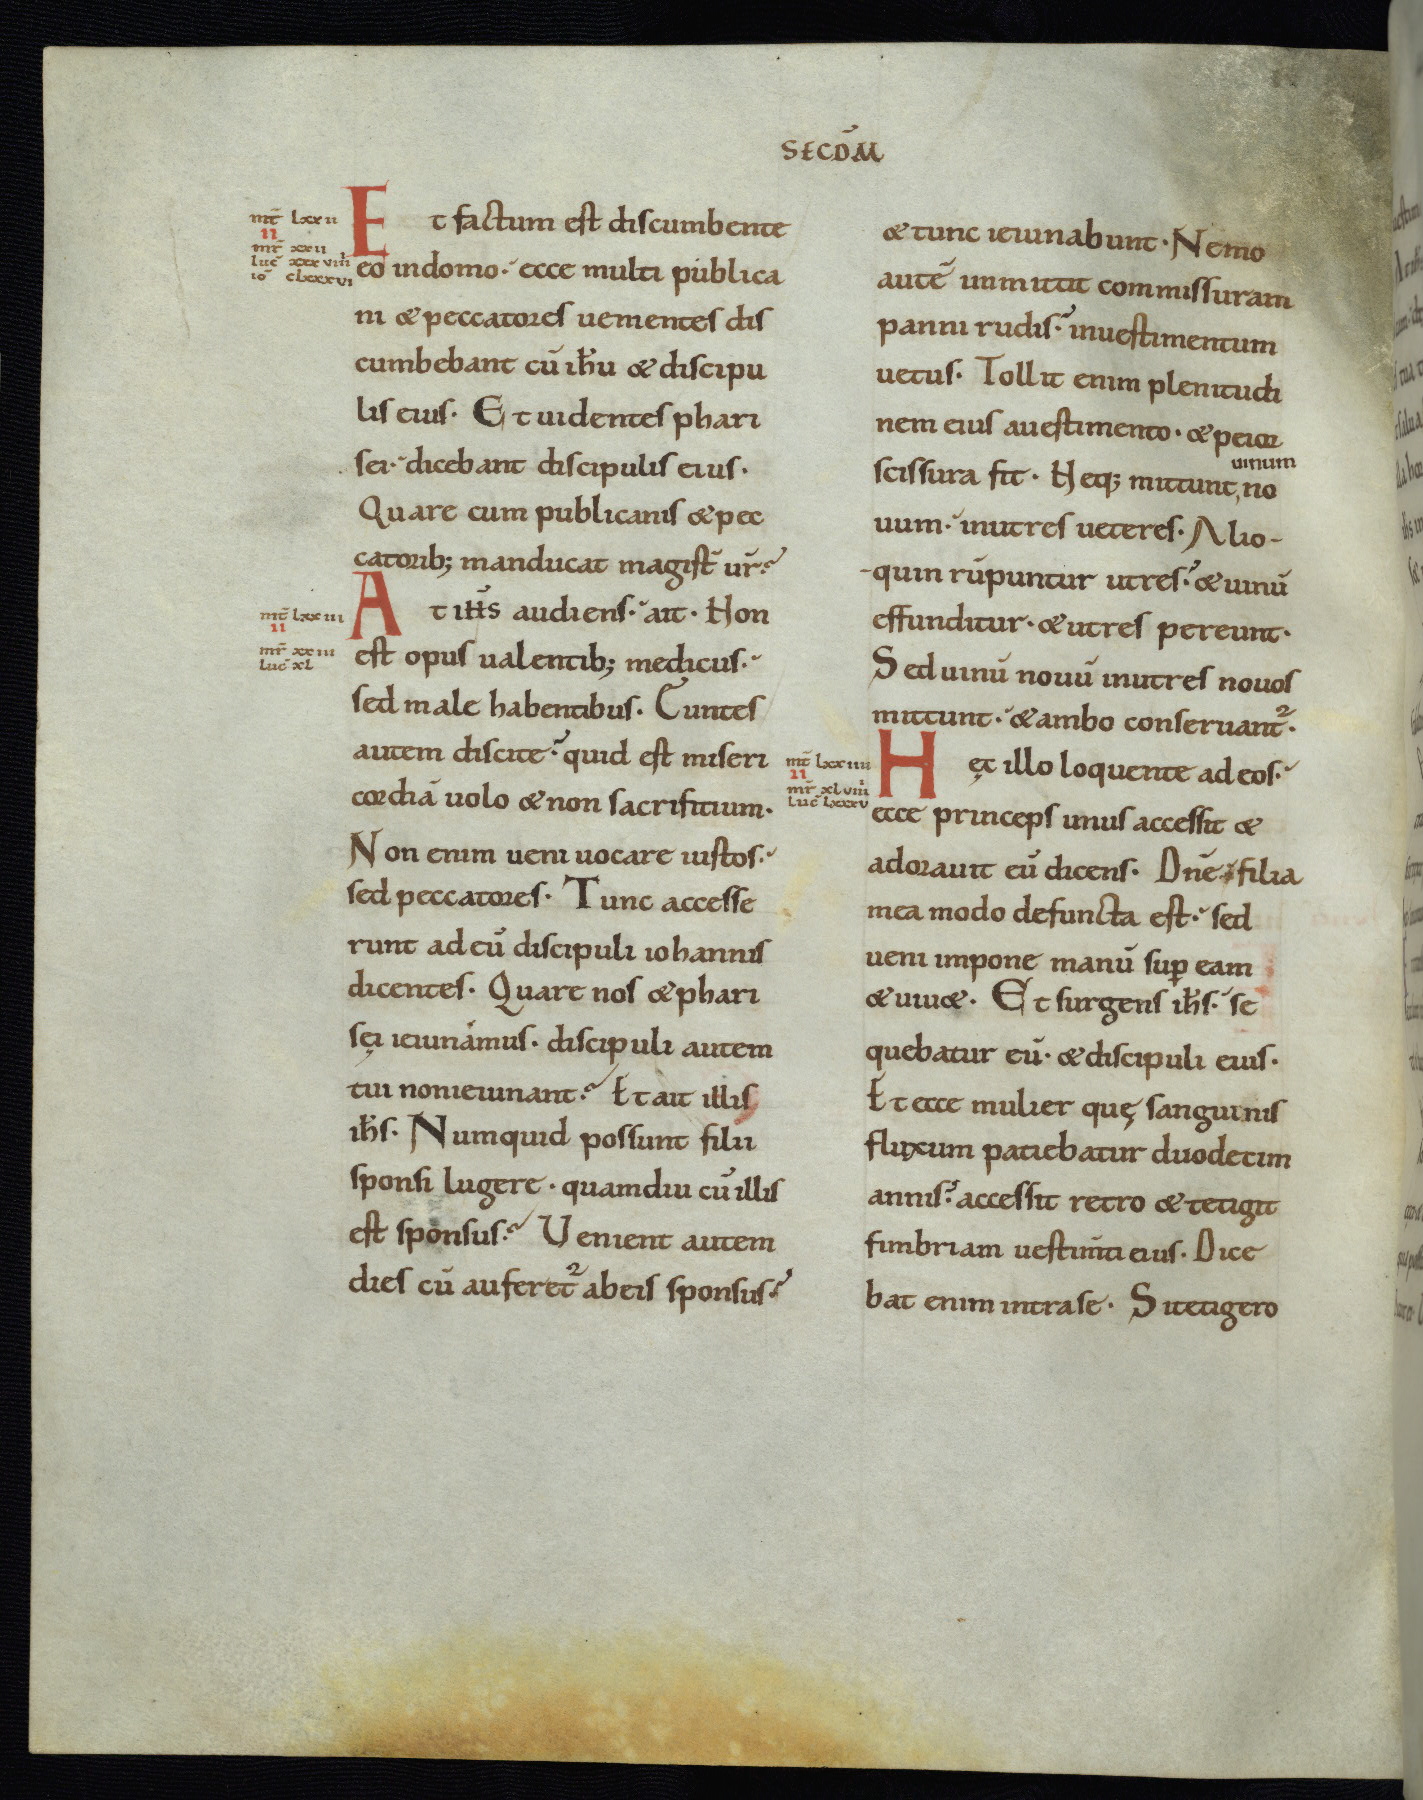 SECD̄M
mt̄ lxxii
II
mr̄ xxii
luc̄ xxxviiii
io̅ clxxxvi
Et factum est discumbente
eo indomo· ecce multi publica
ni & peccatores uenientes dis
cumbebant cū ih̄u & discipu
lis eius· Et uidentes phari
sei· dicebant discipulis eius·
Quare cum publicanis & pec
catorib; manducat magist̄ ur̄?
mt̄ lxxiii
II
mr̄ xxiii
luc̄ xl
At ih̄s audiens· ait· Non
est opus ualentib; medicus·
sed male habentibus· Euntes
autem discite· quid est miseri
cordiā uolo & non sacrificium·
Non enim ueni uocare iustos·
sed peccatores· Tunc accesse
runt ad eū discipuli iohannis
dicentes· Quare nos & phari
sęi ieiunamus· discipuli autem
tui non ieiunant? Et ait illis
ih̄s· Numquid possunt filii
sponsi lugere· quamdiu cū illis
est sponsus? Uenient autem
dies cū auferet᷑ ab eis sponsus·
& tunc ieiunabunt· Nemo
autē inmittit commissuram
panni rudis· inuestimentum
uetus· Tollit enim plenitudi
nem eius auestimento· & peior
scissura fit· Neq; mittunt, no
uinum
uum· inutres ueteres· Alio-
-quin rūpuntur utres· & uinū
effunditur· & utres pereunt·
Sed uinū nouū inutres nouos
mittunt· & ambo conseruant᷑·
mt̄ lxxiiii
II
mr̄ xlviiii
luc̄ lxxxv
Hęc illo loquente ad eos·
ecce princeps unus accessit &
adorauit eū dicens· Dn̄e· filia
mea modo defuncta est· sed
ueni impone manū sup̄ eam
& uiu&· Et surgens ih̄s· se
quebatur eū· & discipuli eius·
Et ecce mulier quę sanguinis
fluxum patiebatur duodecim
annis· accessit retro & tetigit
fimbriam uestim̄ti eius· Dice
bat enim intra se· Si tetigero